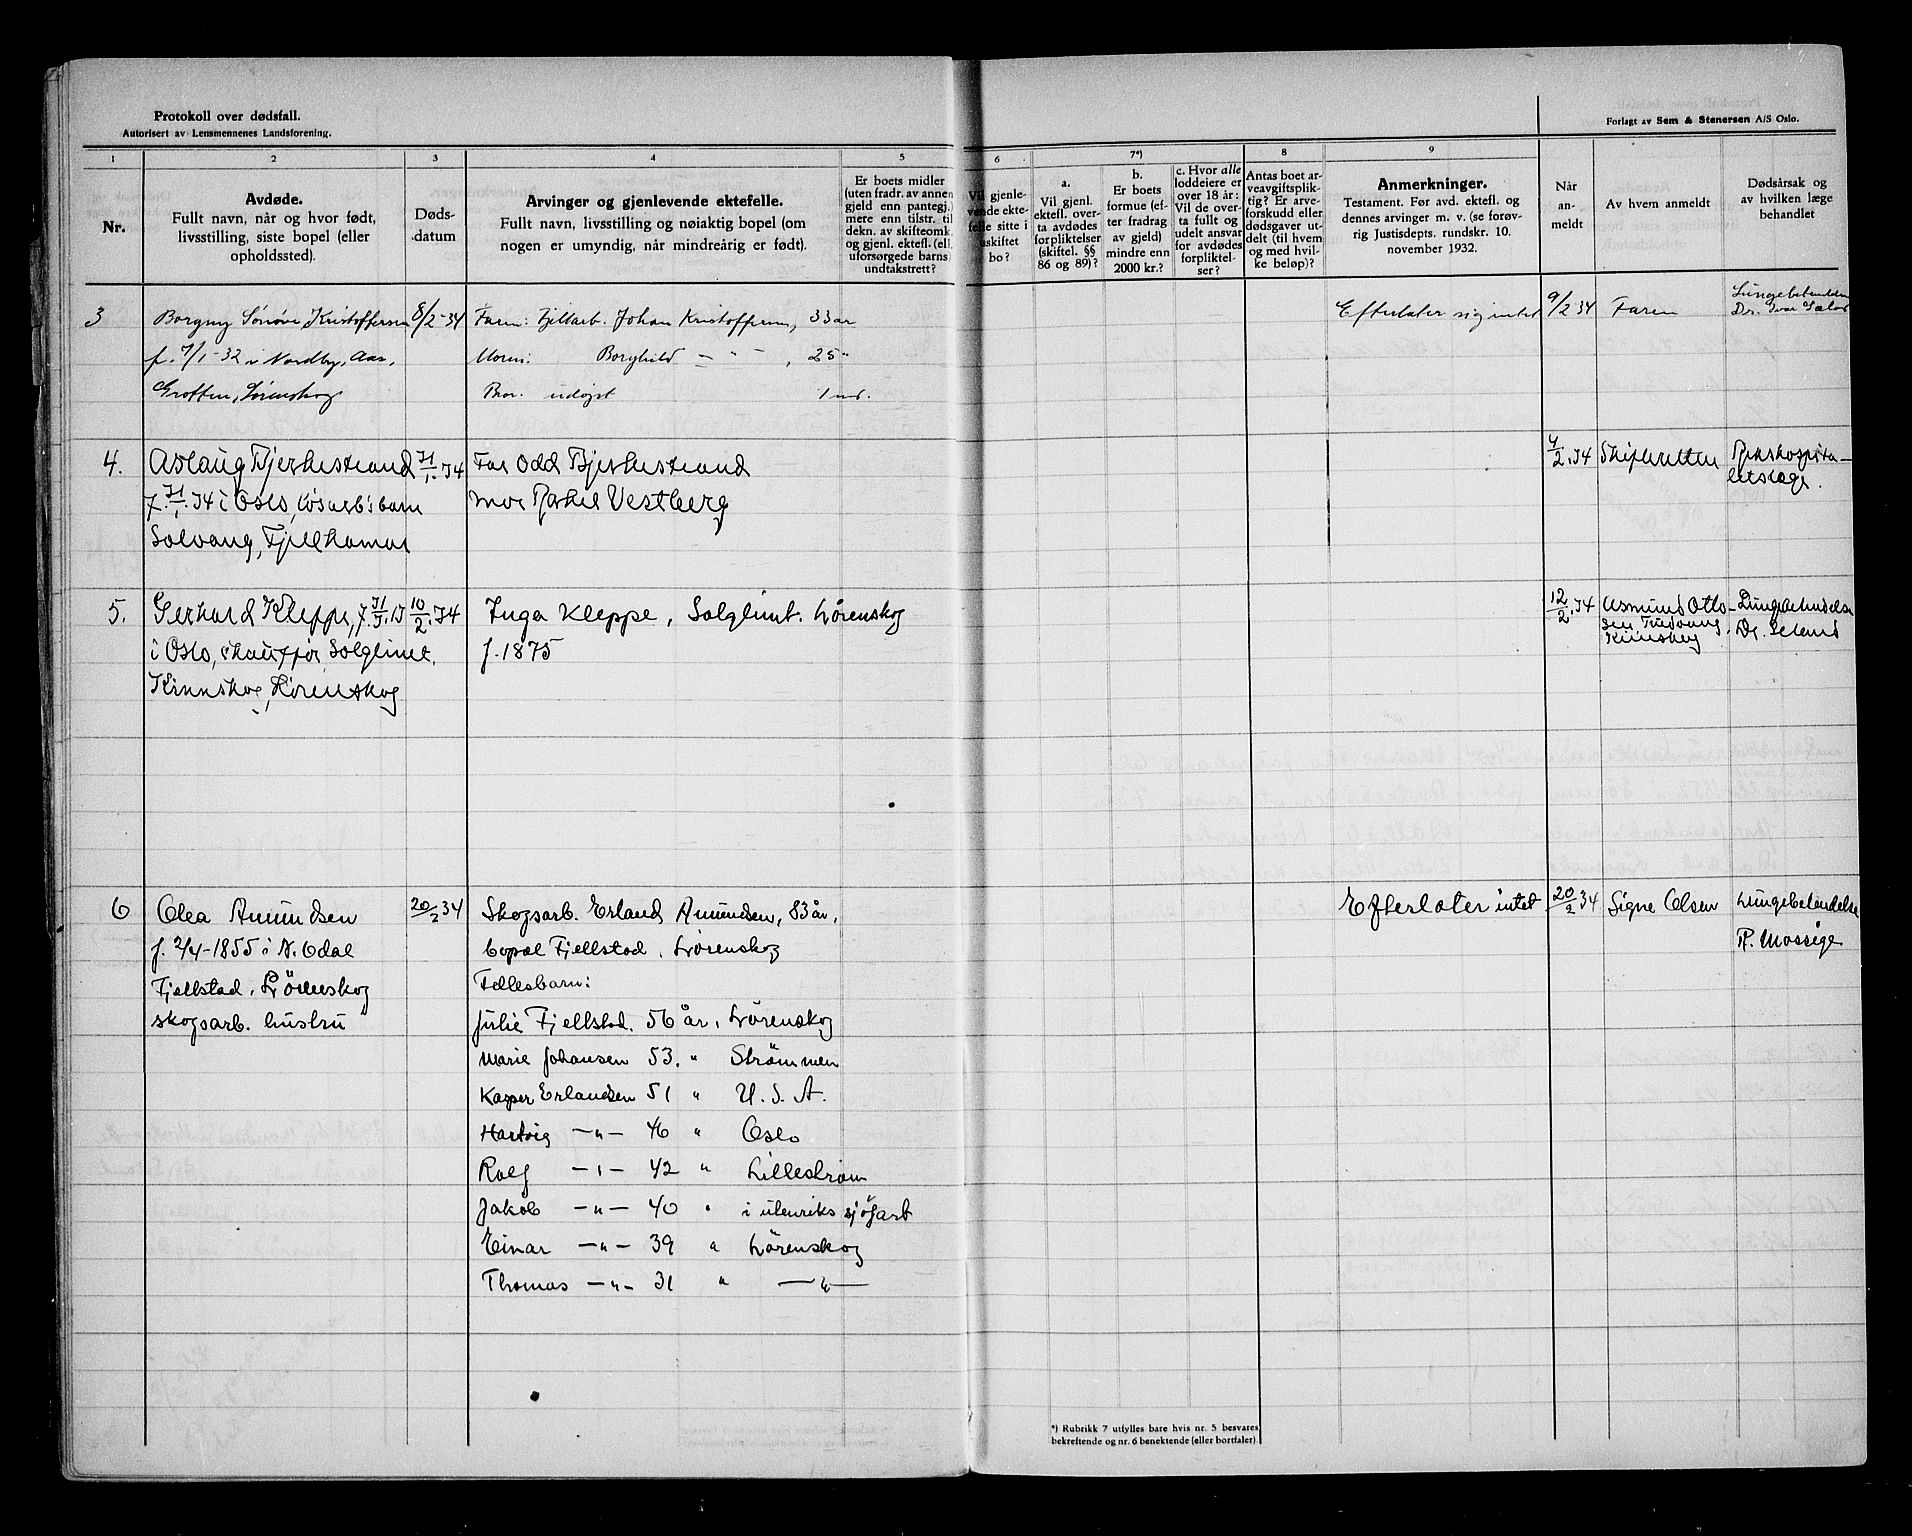 Protokoll over dødsfall.
Autorisert av Lensmennenes Landsforening.
Forlagt av Sem & Stenersen A/S Oslo.
1 2 3 4 5 6 7*) 8 9
Nr.
Avdøde.
Fullt navn, når og hvor født,
livsstilling, siste bopel (eller
opholdssted).
Døds-
datum
Arvinger og gjenlevende ektefelle.
Fullt navn, livsstilling og nøiaktig bopel (om
nogen er umyndig, når mindreårig er født).
Er boets midler
(uten fradr. av annen
gjeld enn pantegj.)
mere enn tilstr. til
dekn. av skifteomk.
og gjenl. ektefl. (ell.
uforsørgede barns)
undtakstrett?
Vil gjenle-
vende ekte-
felle sitte i
uskiftet
bo?
a.
Vil gjenl.
ektefl. over-
ta avdødes
forpliktelser
(skiftel. §§
86 og 89)?
b.
Er boets
formue (ef-
ter fradrag
av gjeld)
mindre enn
2000 kr.?
c. Hvor alle
loddeiere er
over 18 år:
Vil de over-
ta fullt og
udelt ansvar
for avdødes
forpliktel-
ser?
Antas boet ar-
veavgiftsplik-
tig? Er arve-
forskudd eller
dødsgaver ut-
delt (til hvem
og med hvil-
ke beløp)?
Anmerkninger.
Testament. Før avd. ektefl. og
dennes arvinger m. v. (se forøv-
rig Justisdepts. rundskr. 10.
november 1932.
Når
an-
meldt
Av hvem anmeldt
Dødsårsak og
av hvilken læge
behandlet
3 Borgny Sønøve Kristoffersen 8/2-34 Faren: Fjellarb. Johan Kristoffersen, 33 år Efterlater sig intet 9/2 34 Faren Lungebetendelse
Dr. Ivar
f. 7/1-32 i Nordby, Aas, Moren: Borghild — " — , 25 "
Grotten, Lørenskog Bror. udøpt 1 md.
4. Aslaug Bjerkestrand 31/1.34 Far Odd Bjerkestrand 7/2.34 Skifteretten Rikshospita-
letslæge.
f. 31/1.34 i Oslo, løsarb's barn mor Rakel Vestberg
Solvang, Fjellhamar
5. Gerhard Kleppe, f. 31/3.13 10/2.34 Inga Kleppe, Solglimt. Lørenskog 12/2.34 Asmund Otto-
sen Trudvang,
Kinnskog Lungebetendelse
Dr. Seland
i Oslo, chauffør, Solglimt, f. 1875
Kinnskog, Lørenskog
6 Olea Amundsen 20/2 34 Skogsarb. Erland Amundsen, 83 år, Efterlater intet 20/2 34 Signe Olsen Lungebetendelse
f. 2/4-1855 i N. Odal bopæl Fjellstad, Lørenskog R. Mossige
Fjellstad, Lörenskog Fellesbarn:
skogsarb. hustru Julie Fjellstad. 56 år, Lörenskog
Marie Johansen 53. " Strömmen
Kasper Erlandsen 51 " U. S. A.
Hartvig —"— 46 " Oslo
Rolf —"— 42 " Lillestrøm
Jakob —"— 40 " i utenriks sjöfart
Einar —"— 39 " Lörenskog
Thomas —"— 31 " —"—
*) Rubrikk 7 utfylles bare hvis nr. 5 besvares
bekreftende og nr. 6 benektende (eller bortfaler).